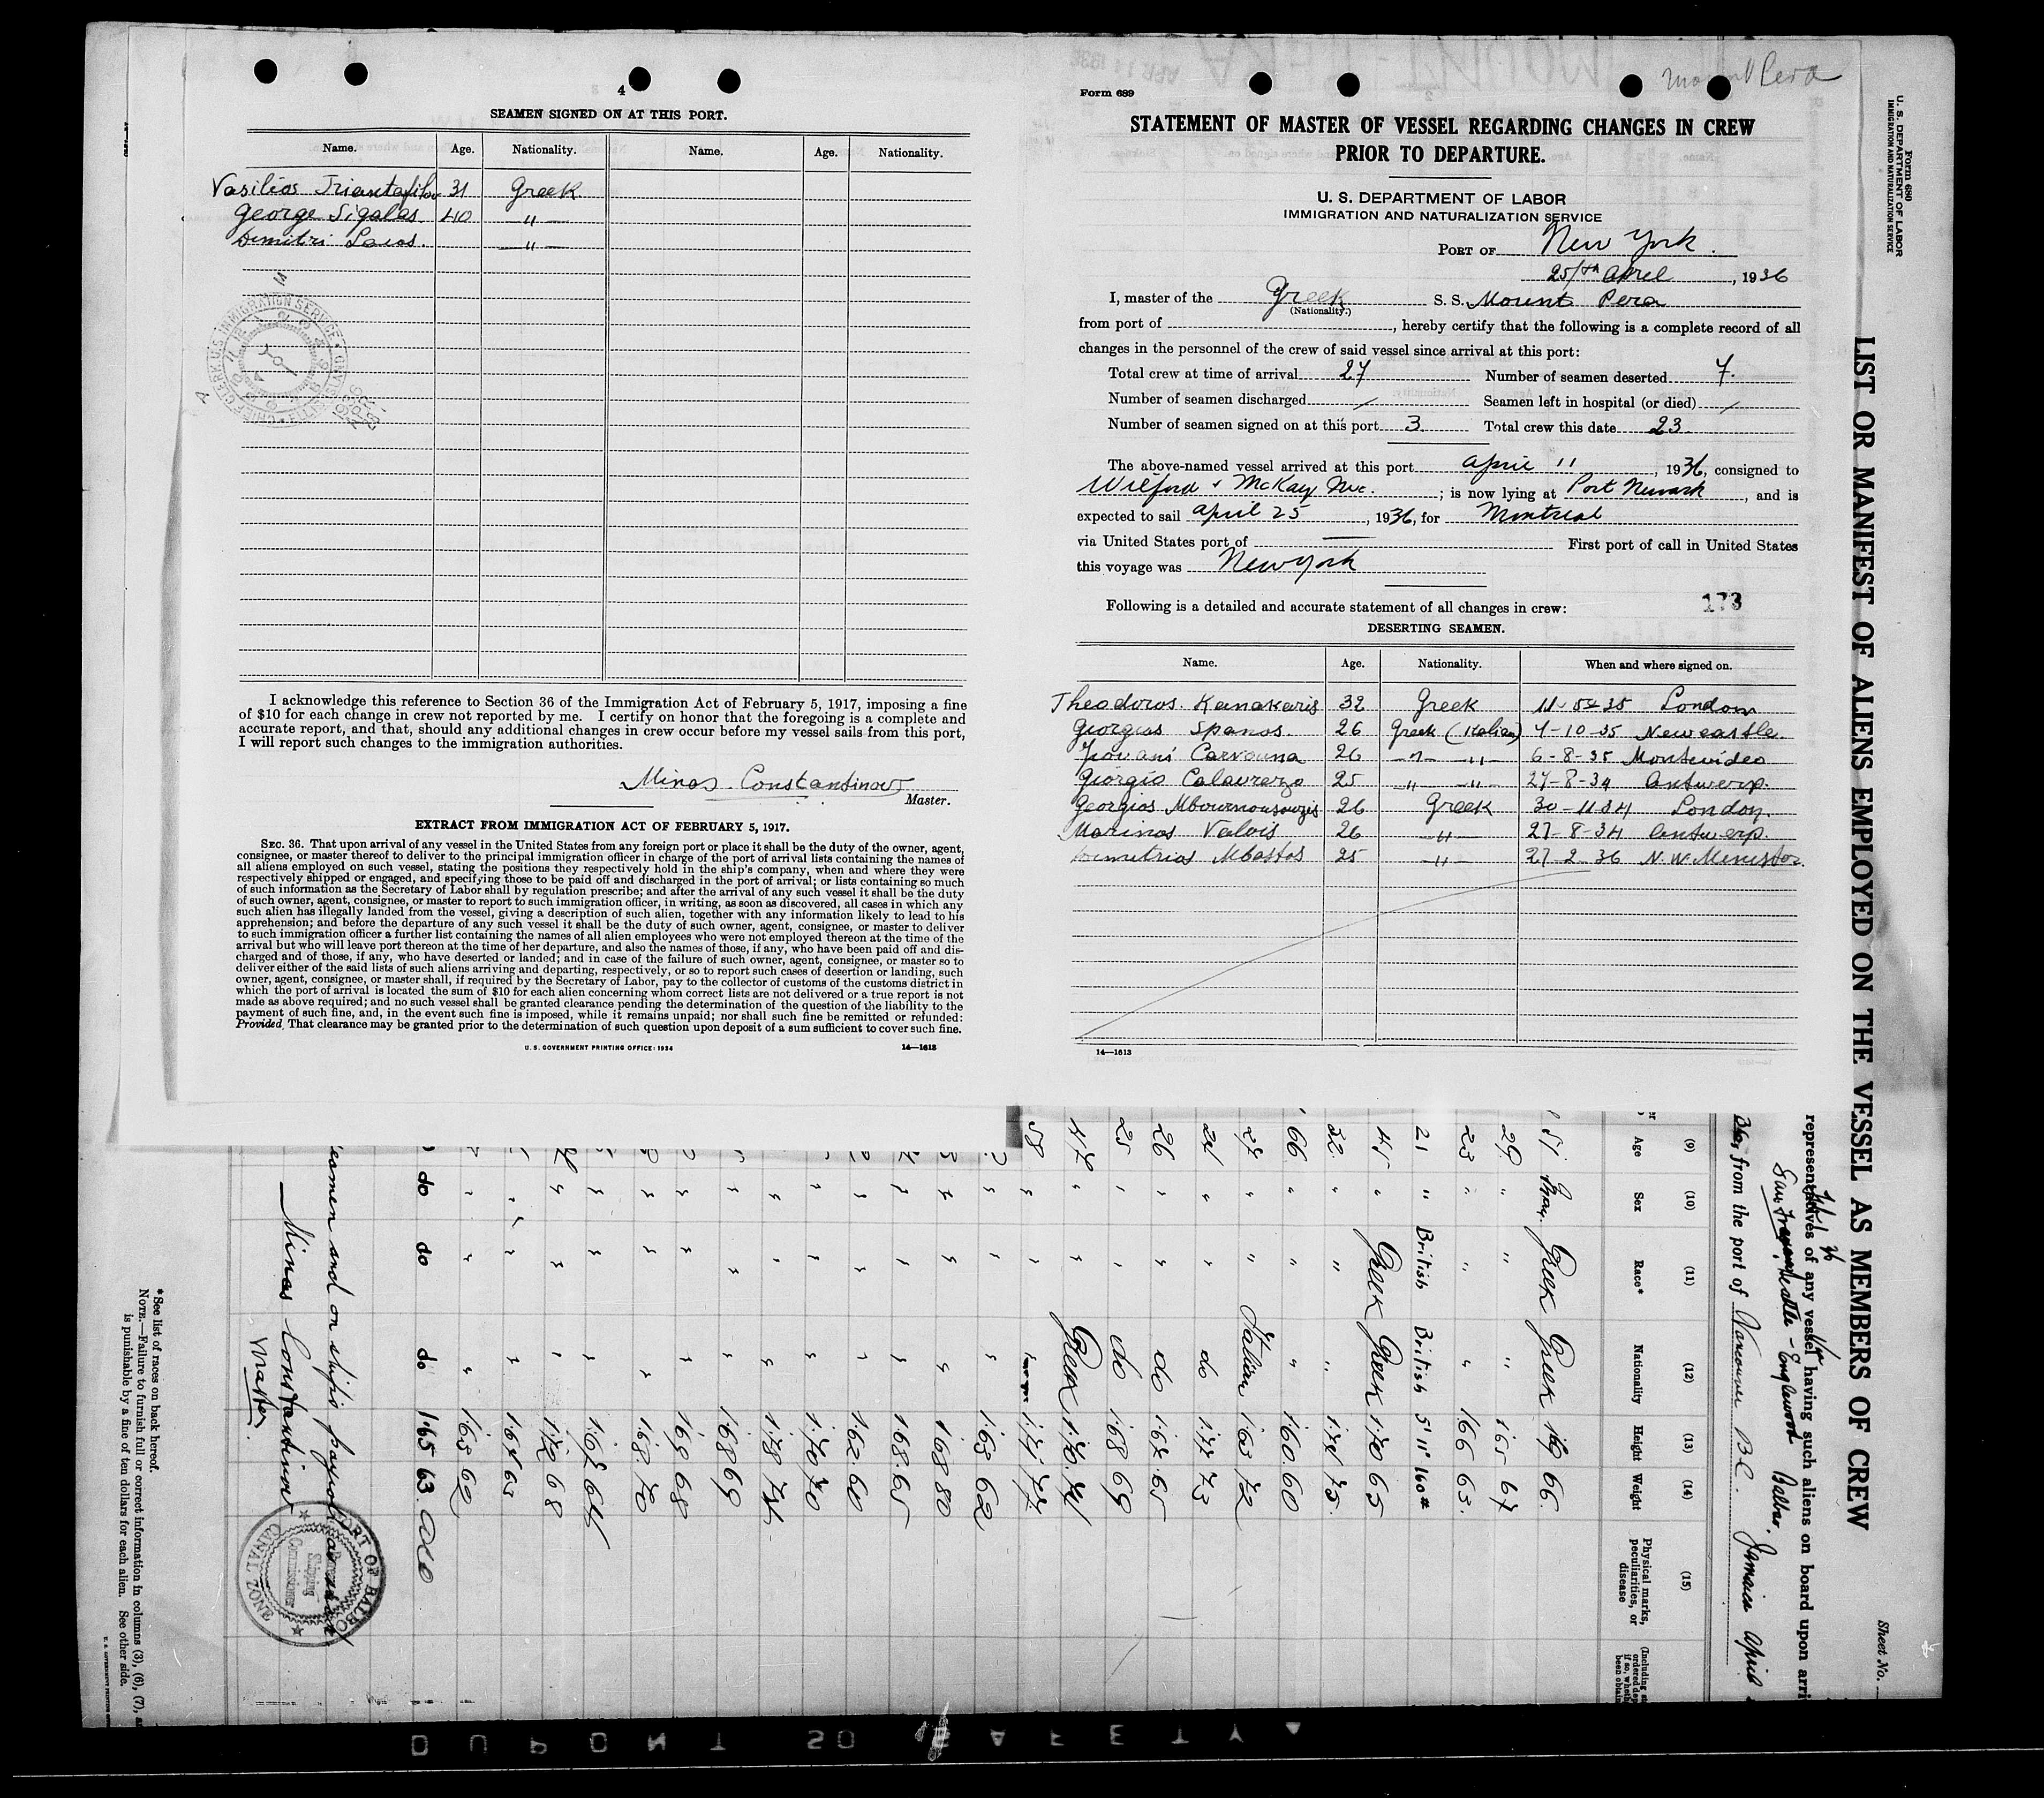 4
SEAMEN SIGNED ON AT THIS PORT.
Name. Age. Nationality. Name. Age. Nationality.
Vasilios Triantafilou 31 Greek
George Sigalas 40 "
Dimitri Laios. "
I acknowledge this reference to Section 36 of the Immigration Act of February 5, 1917, imposing a fine
of $10 for each change in crew not reported by me. I certify on honor that the foregoing is a complete and
accurate report, and that, should any additional changes in crew occur before my vessel sails from this port,
I will report such changes to the immigration authorities.
Minas Constantinou
Master.
EXTRACT FROM IMMIGRATION ACT OF FEBRUARY 5, 1917.
SEC. 36. That upon arrival of any vessel in the United States from any foreign port or place it shall be the duty of the owner, agent,
consignee, or master thereof to deliver to the principal immigration officer in charge of the port of arrival lists containing the names of
all aliens employed on such vessel, stating the positions they respectively hold in the ship's company, when and where they were
respectively shipped or engaged, and specifying those to be paid off and discharged in the port of arrival; or lists containing so much
of such information as the Secretary of Labor shall by regulation prescribe; and after the arrival of any such vessel it shall be the duty
of such owner, agent, consignee, or master to report to such immigration officer, in writing, as soon as discovered, all cases in which any
such alien has illegally landed from the vessel, giving a description of such alien, together with any information likely to lead to his
apprehension; and before the departure of any such vessel it shall be the duty of such owner, agent, consignee, or master to deliver
to such immigration officer a further list containing the names of all alien employees who were not employed thereon at the time of the
arrival but who will leave port thereon at the time of her departure, and also the names of those, if any, who have been paid off and dis-
charged and of those, if any, who have deserted or landed; and in case of the failure of such owner, agent, consignee, or master so to
deliver either of the said lists of such aliens arriving and departing, respectively, or so to report such cases of desertion or landing, such
owner, agent, consignee, or master shall, if required by the Secretary of Labor, pay to the collector of customs of the customs district in
which the port of arrival is located the sum of $10 for each alien concerning whom correct lists are not delivered or a true report is not
made as above required; and no such vessel shall be granted clearance pending the determination of the question of the liability to the
payment of such fine, and, in the event such fine is imposed, while it remains unpaid; nor shall such fine be remitted or refunded:
Provided, That clearance may be granted prior to the determination of such question upon deposit of a sum sufficient to cover such fine.
U. S. GOVERNMENT PRINTING OFFICE: 1934 14—1613
Mount Pera
Form 689
STATEMENT OF MASTER OF VESSEL REGARDING CHANGES IN CREW
PRIOR TO DEPARTURE.
U. S. DEPARTMENT OF LABOR
IMMIGRATION AND NATURALIZATION SERVICE
PORT OF New York.
25/th April, 1936
I, master of the Greek S. S. Mount Pera
(Nationality.)
from port of , hereby certify that the following is a complete record of all
changes in the personnel of the crew of said vessel since arrival at this port:
Total crew at time of arrival 27 Number of seamen deserted 7.
Number of seamen discharged / Seamen left in hospital (or died) /
Number of seamen signed on at this port 3 Total crew this date 23
The above-named vessel arrived at this port April 11, 1936, consigned to
Wilford & McKay Inc.; is now lying at Port Newark, and is
expected to sail April 25, 1936, for Montreal
via United States port of — First port of call in United States
this voyage was New York
Following is a detailed and accurate statement of all changes in crew: 173
DESERTING SEAMEN.
Name. Age. Nationality. When and where signed on.
Theodoros Kanakaris 32 Greek London
Georgios Spanos. 26 Greek (Italian) 4-10-35 Newcastle.
Carvouna 26 " " 6-8-35 Montevideo
Giorgio Calavrezo 25 " " 27-8-34 Antwerp.
Georgios 26 Greek 30-11-34 London.
Marinos Valois 26 " 27-8-34 Antwerp.
Dimitrios Mbastas 25 " 27-2-36 N. W. Minister.
14—1613
Form 680
U. S. DEPARTMENT OF LABOR
IMMIGRATION AND NATURALIZATION SERVICE
LIST OR MANIFEST OF ALIENS EMPLOYED ON THE VESSEL AS MEMBERS OF CREW
Sheet No.
representatives of any vessel having such aliens on board upon arri
Seattle - Englewood Balboa. Jamaica April
from the port of Vancouver B.C.
(9) (10) (11) (12) (13) (14) (15)
Age Sex Race* Nationality Height Weight Physical marks, peculiarities, or disease
51 Greek Greek 66
29 " " " 165 67
23 " " " 166 63.
21 " British British 5' 11" 160#
45 " Greek Greek 1.70 65
32 " " "
66 " " " 160. 60
27 " " Italian 1.63 72
24 " " do 1.77 73
26 " " do 1.67. 65
25 " " do 1.68 69
47 " " Greek
58 " "
1.63 62
1.68 80
1.68. 65
1.62 60
1.70 70
1.68 69
1.69 68
1.68. 70
1.72 68
1.65 62
do do do 1.65 63.
seamen and on ship's payroll
Minas Constantinou
Master.
PORT OF BALBOA
Shipping Commissioner
CANAL ZONE
* See list of races on back hereof.
NOTE.—Failure to furnish full or correct information in columns (3), (6), (7),
is punishable by a fine of ten dollars for each alien. See other side.
DUPONT SAFETY